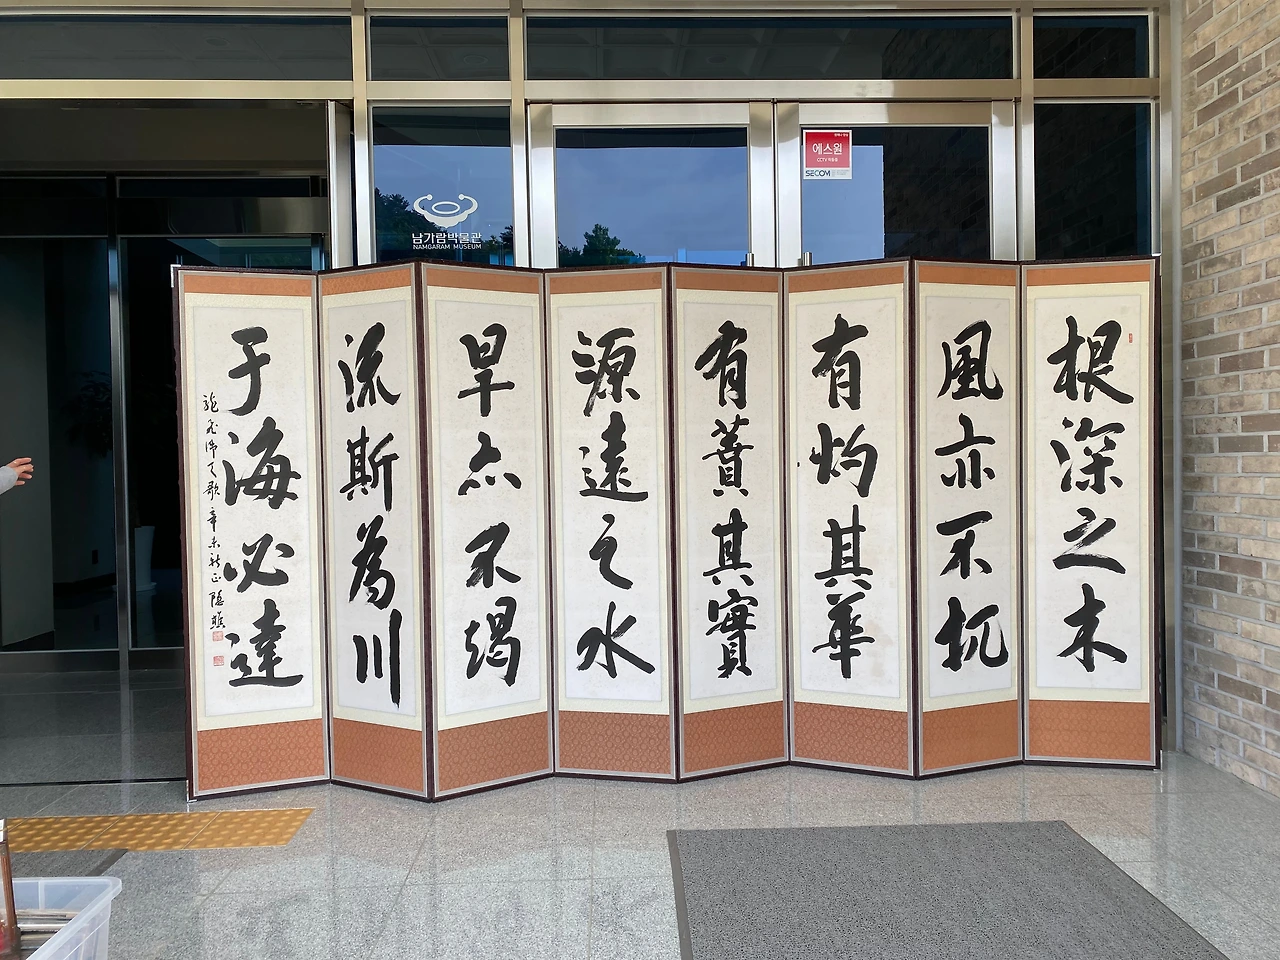 根深之木
風亦不扤
有灼其華
有蕡其實
源遠之水
旱亦不竭
流斯為川
于海必達
龍飛御天歌 辛未新正
남가람박물관
NAMGARAM MUSEUM
에스원
CCTV 작동중
SECOM